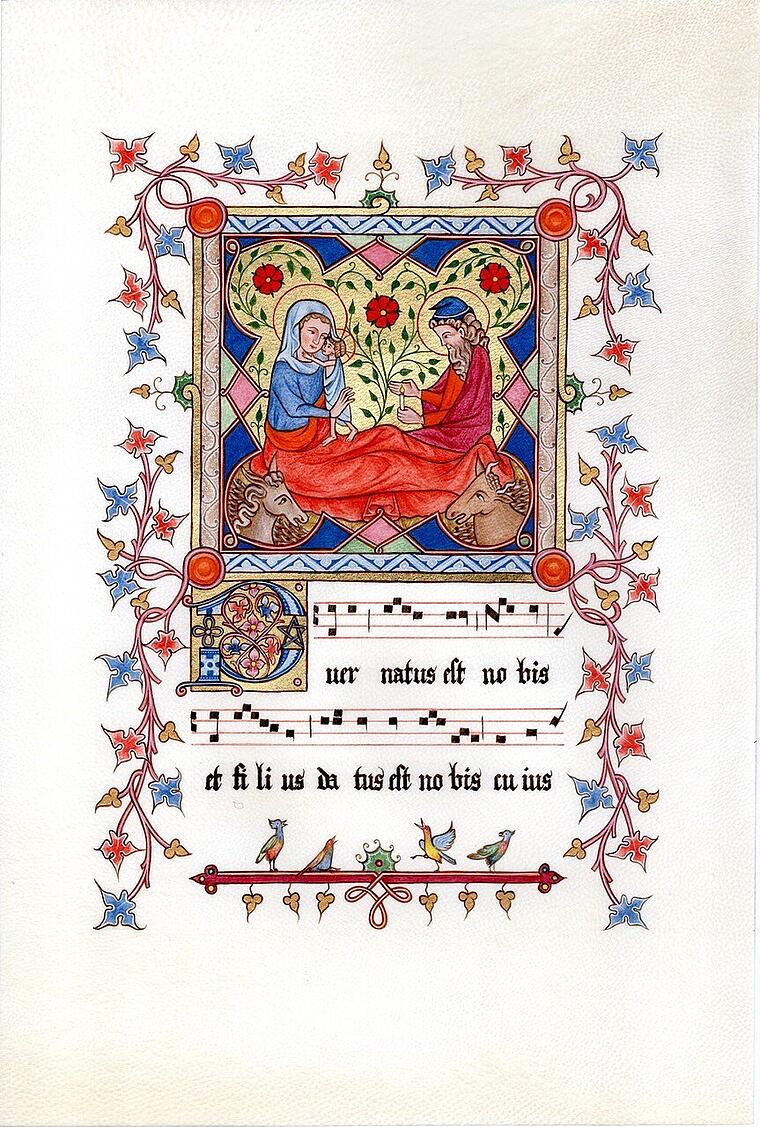 Puer natus est no bis
et fi li us da tus est no bis cu ius